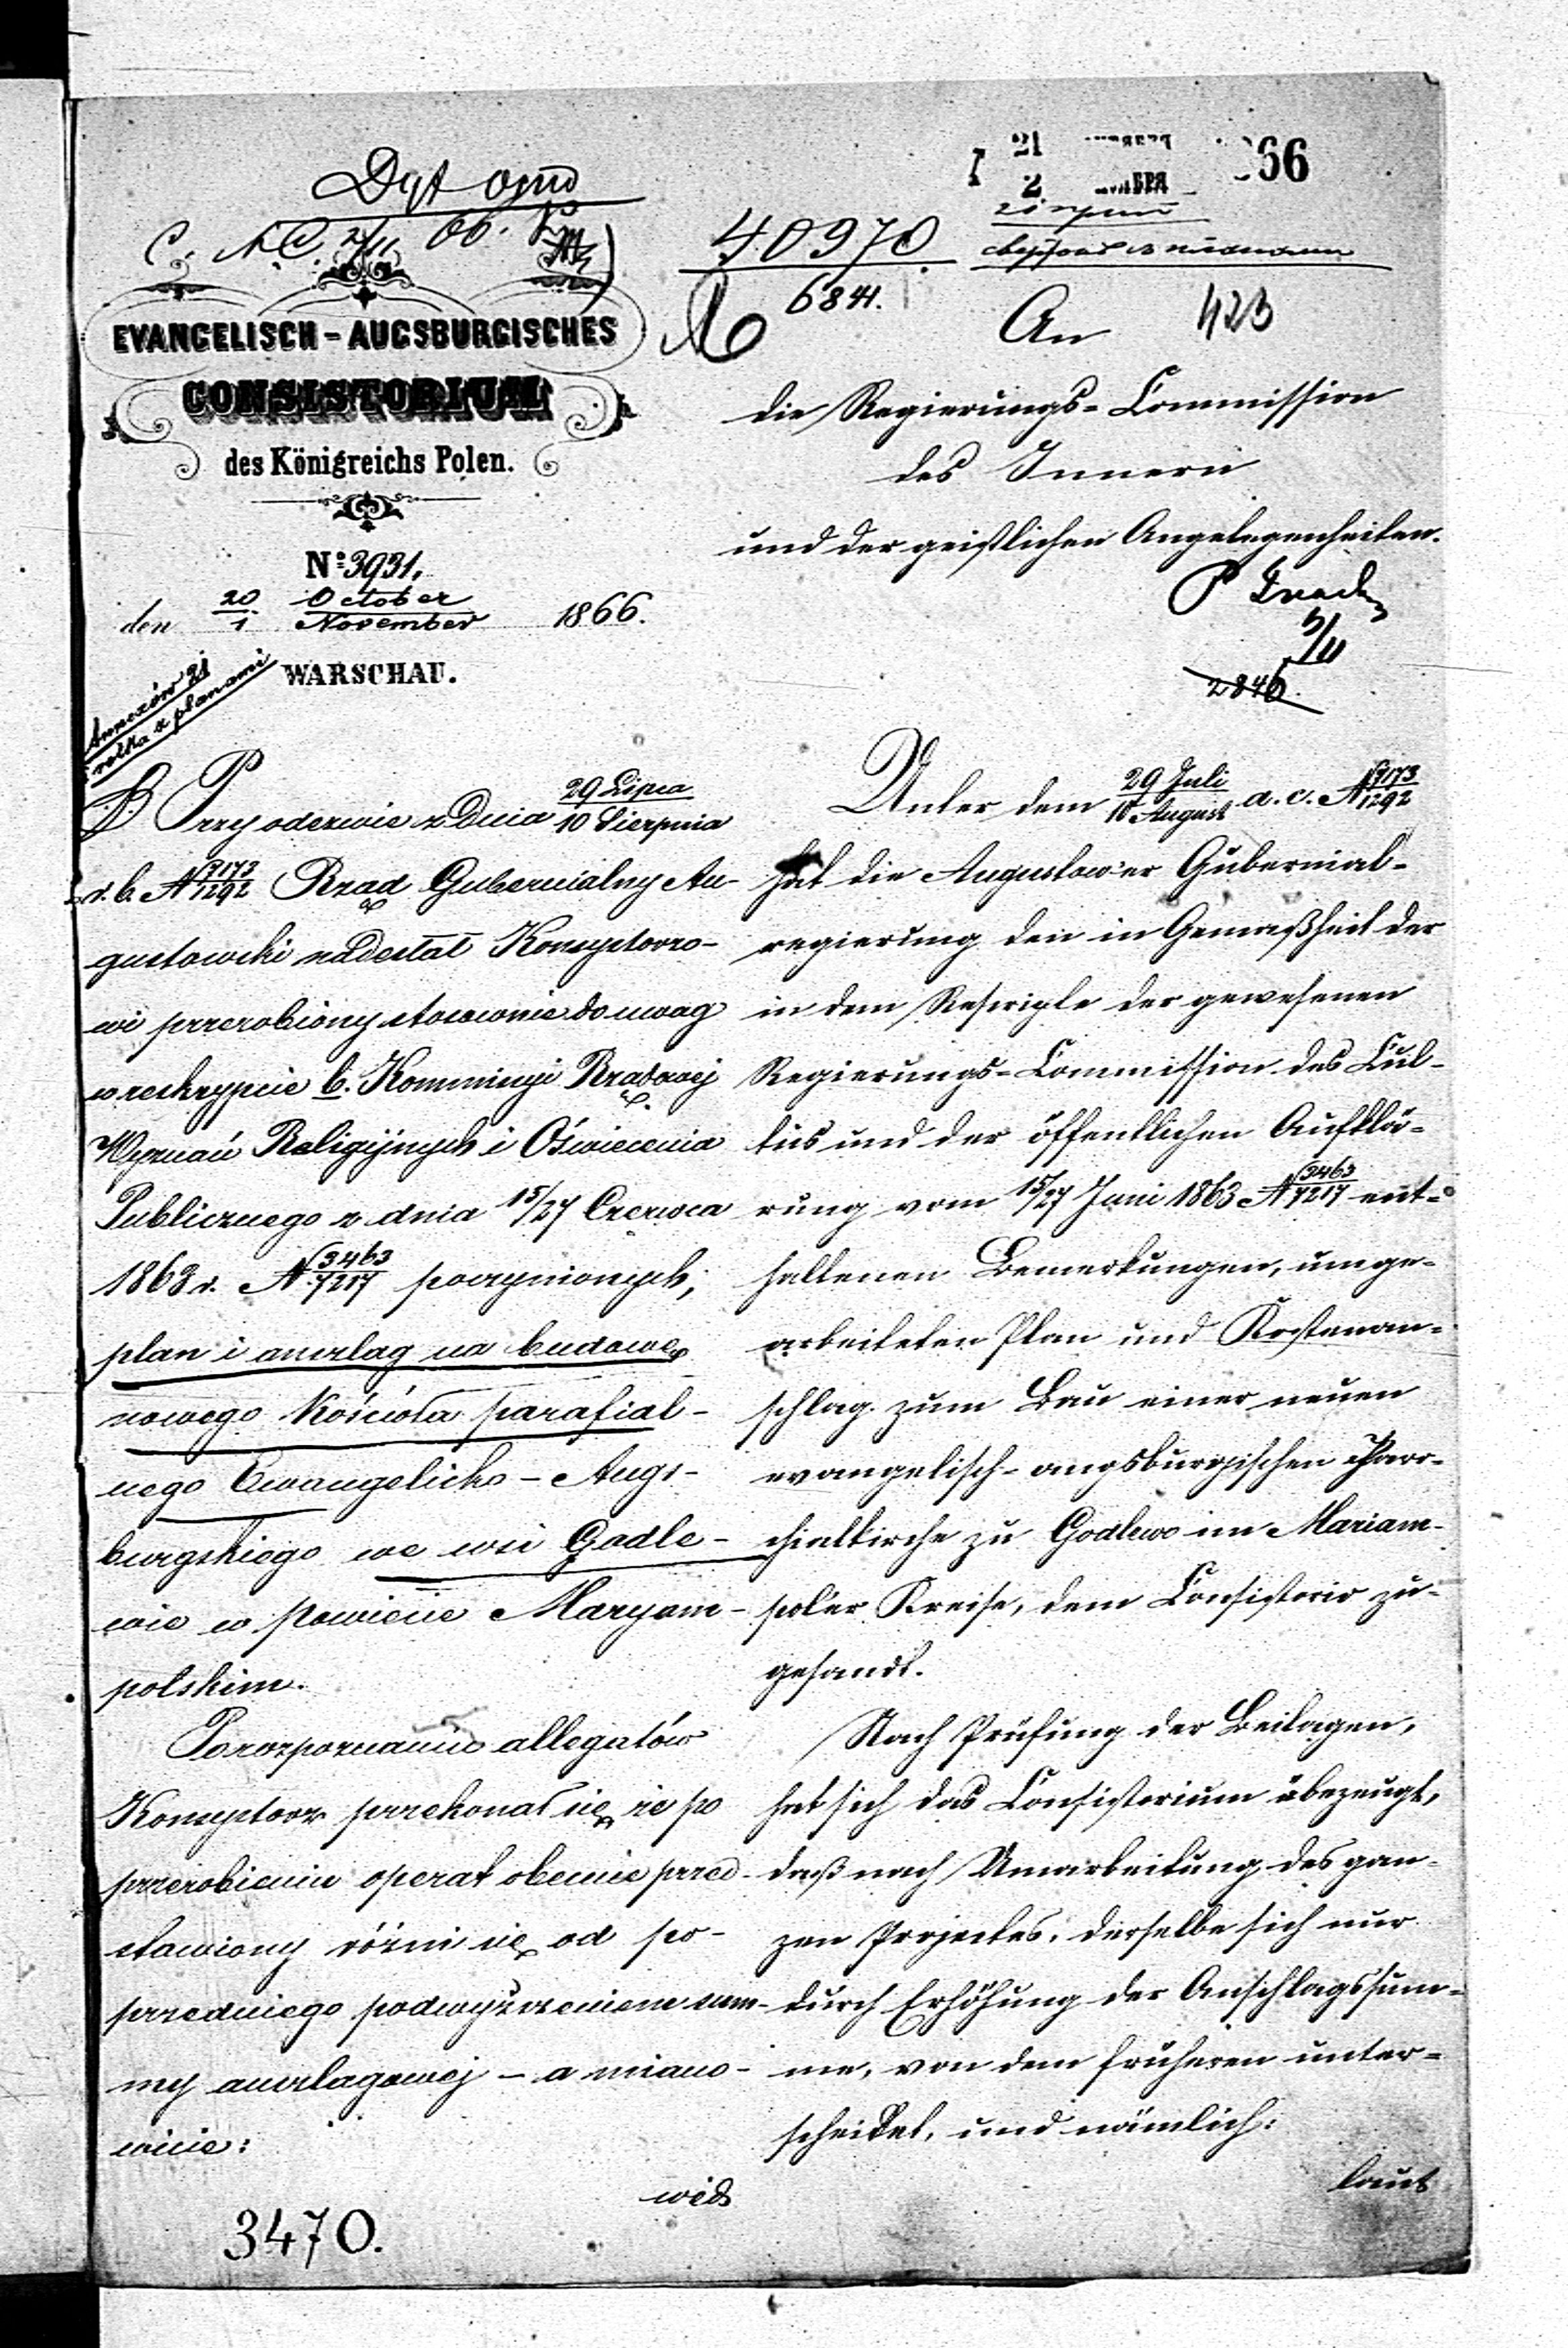 21
2
66
40970
6841.
423
EVANGELISCH-AUGSBURGISCHES
CONSISTORIUM
des Königreichs Polen.
N° 3931.
den 20/1 October/November 1866.
WARSCHAU.
Annexów 21
rolka z planami
An
die Regierungs-Commission
des Innern
und der geistlichen Angelegenheiten.
2846.
Przy odezwie z dnia 29 Lipca/10 Sierpnia
r. b. N 9173/1292 Rząd Gubernialny Au-
gustowski nadesłał Konsystorzo-
wi przerobiony stosownie do uwag
w reskrypcie b. Kommissyi Rządowej
Wyznań Religijnych i Oświecenia
Publicznego z dnia 15/27 Czerwca
1863 r. N 3463/7217 poczynionych,
plan i anszlag na budowę
nowego Kościoła parafial-
nego Ewangelicko-Augs-
burgskiego we wsi Godle-
wie w Powiecie Maryam-
polskim.
Po rozpoznaniu allegatów
Konsystorz przekonał się, że po
przerobieniu operat obecnie przed-
stawiony różni się od po-
przedniego podwyższeniem sum-
my anszlagowej – a miano-
wicie:
3470.
Unter dem 29 Juli/10 August a. c. N 9173/1292
hat die Augustow'er Gubernial-
regierung den in Gemäßheit der
in dem Rescripte der gewesenen
Regierungs-Commission des Cul-
tus und der öffentlichen Aufklä-
rung vom 15/27 Juni 1863 N 3463/7217 ent-
haltenen Bemerkungen, umge-
arbeiteten Plan und Kostenan-
schlag zum Bau einer neuen
evangelisch-augsburgischen Paro-
chialkirche zu Godlewo im Mariam-
pol'er Kreise, dem Consistorio zu-
gesandt.
Nach Prüfung der Beilagen,
hat sich das Consistorium überzeugt,
daß nach Umarbeitung des gan-
zen Projectes, derselbe sich nur
durch Erhöhung der Anschlagssum-
me, von dem früheren unter-
scheidet, und nämlich:
laut